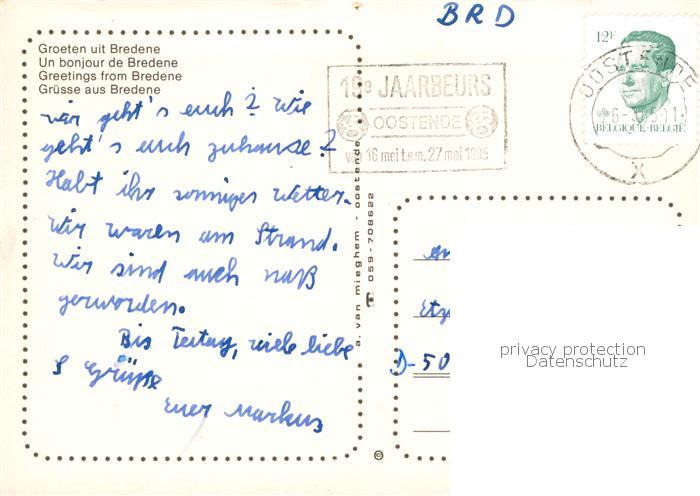 BRD
12F
OOSTENDE
BELGIQUE-BELGIË
X
JAARBEURS
OOSTENDE
16 mei t.e.m. 27 mei
Groeten uit Bredene
Un bonjour de Bredene
Greetings from Bredene
Grüsse aus Bredene
wie geht's euch? Wie
geht's euch zuhause?
Habt ihr sonniges Wetter.
Wir waren am Strand.
Wir sind auch naß
geworden.
Bis Freitag, viele liebe
Grüße
Euer Markus
a. van mieghem - oostende
059-708622
©
An
Etz
D-50
privacy protection
Datenschutz